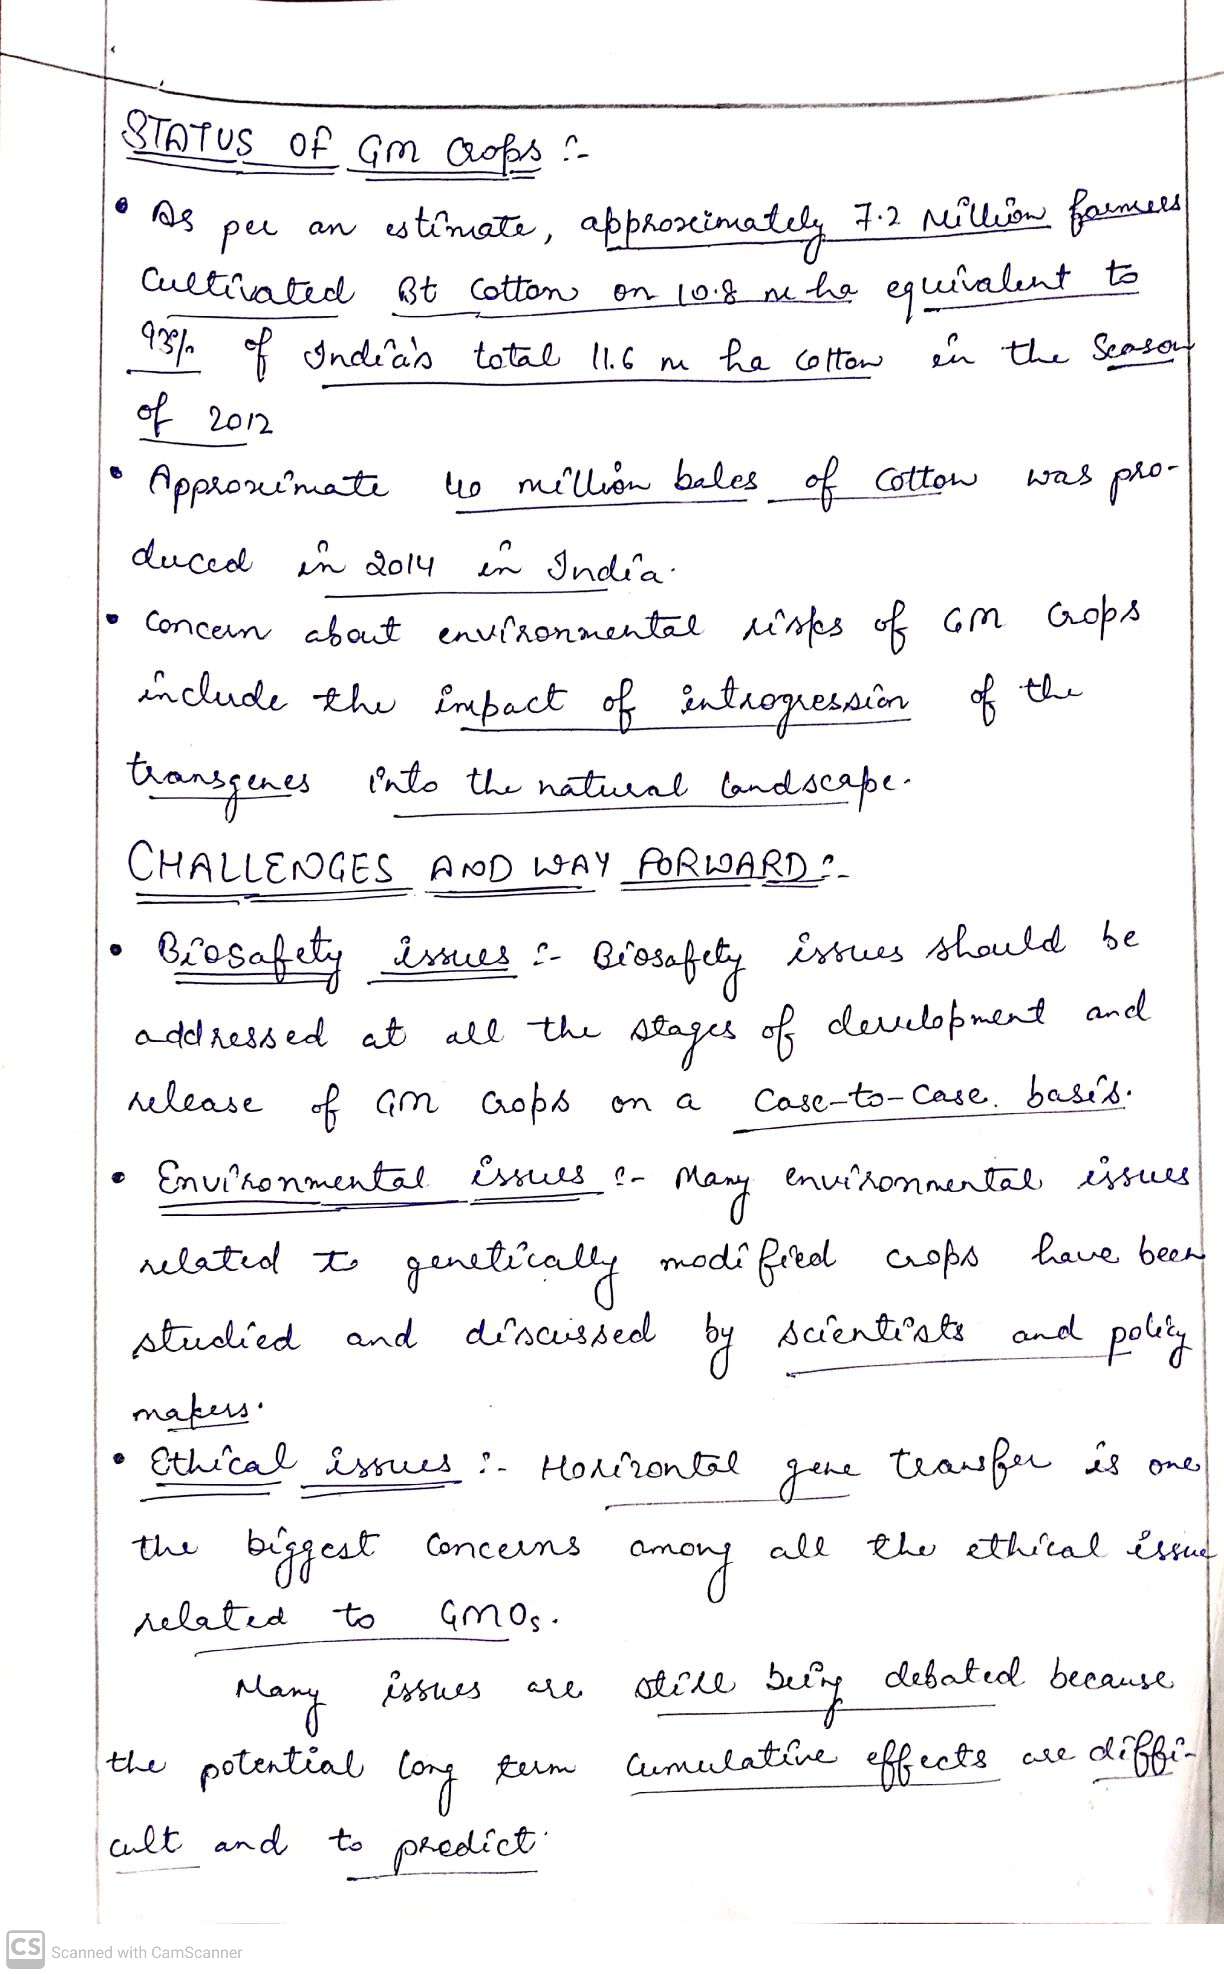 STATUS OF GM Crops :-
• As per an estimate, approximately 7.2 Million farmers
Cultivated Bt Cotton on 10.8 m ha equivalent to
93% of India's total 11.6 m ha Cotton in the Season
of 2012
• Approximate 40 million bales of Cotton was pro-
duced in 2014 in India.
• Concern about environmental risks of GM Crops
include the impact of introgression of the
transgenes into the natural landscape.
CHALLENGES AND WAY FORWARD :-
• Biosafety issues :- Biosafety issues should be
addressed at all the stages of development and
release of GM Crops on a Case-to-Case. basis.
• Environmental issues :- Many environmental issues
related to genetically modified crops have been
studied and discussed by scientists and policy
makers.
• Ethical issues :- Horizontal gene transfer is one
the biggest Concerns among all the ethical issue
related to GMOs.
Many issues are still being debated because
the potential long term Cumulative effects are diffi-
cult and to predict.
CS Scanned with CamScanner